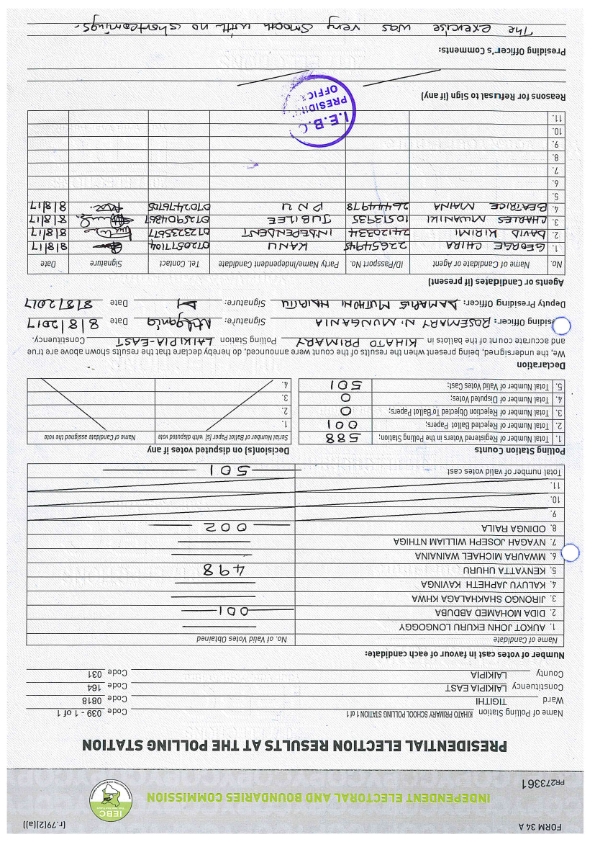 FORM 34 A [r.79(2)(a)]
INDEPENDENT ELECTORAL AND BOUNDARIES COMMISSION
IEBC
PR273361
PRESIDENTIAL ELECTION RESULTS AT THE POLLING STATION
Name of Polling Station KIHATO PRIMARY SCHOOL POLLING STATION 1 of 1 Code 039 - 1 of 1
Ward TIGITHI Code 0818
Constituency LAIKIPIA EAST Code 164
County LAIKIPIA Code 031
Number of votes cast in favour of each candidate:
Name of Candidate No. of Valid Votes Obtained
1. AUKOT JOHN EKURU LONGOGGOY
2. DIDA MOHAMED ABDUBA 001
3. JIRONGO SHAKHALAGA KHWA
4. KALUYU JAPHETH KAVINGA
5. KENYATTA UHURU 498
6. MWAURA MICHAEL WAINAINA
7. NYAGAH JOSEPH WILLIAM NTHIGA
8. ODINGA RAILA 002
9.
10.
11.
Total number of valid votes cast 501
Polling Station Counts
1. Total Number of Registered Voters in the Polling Station; 588
2. Total Number of Rejected Ballot Papers; 001
3. Total Number of Rejection Objected To Ballot Papers; 0
4. Total Number of Disputed Votes; 0
5. Total Number of Valid Votes Cast; 501
Decision(s) on disputed votes if any
Serial Number of Ballot Paper (s) with disputed vote Name of Candidate assigned the vote
1.
2.
3.
4.
Declaration
We, the undersigned, being present when the results of the count were announced, do hereby declare that the results shown above are true
and accurate count of the ballots in KIHATO PRIMARY Polling Station LAIKIPIA-EAST Constituency.
Presiding Officer: ROSEMARY N. MUNGANIA Signature: Date 8/8/2017
Deputy Presiding Officer: DAMARIS MUTHONI Signature: Date 8/8/2017
Agents or Agents (if present)
No. Name of Candidate or Agent ID/Passport No. Party Name/Independent Candidate Tel. Contact Signature Date
1. GEORGE CHIRA KANU 8/8/17
2. DAVID KIRIMI 24120334 INDEPENDENT 8/8/17
3. CHARLES 10513935 JUBILEE 8/8/17
4. BEATRICE MAINA 26444978 PNU 0702476705 8/8/17
5.
6.
7.
8.
9.
10.
11.
Reasons for Refusal to Sign (if any)
I.E.B.C
PRESIDING
OFFICER
Presiding Officer's Comments:
The exercise was very smooth with no shortcomings.